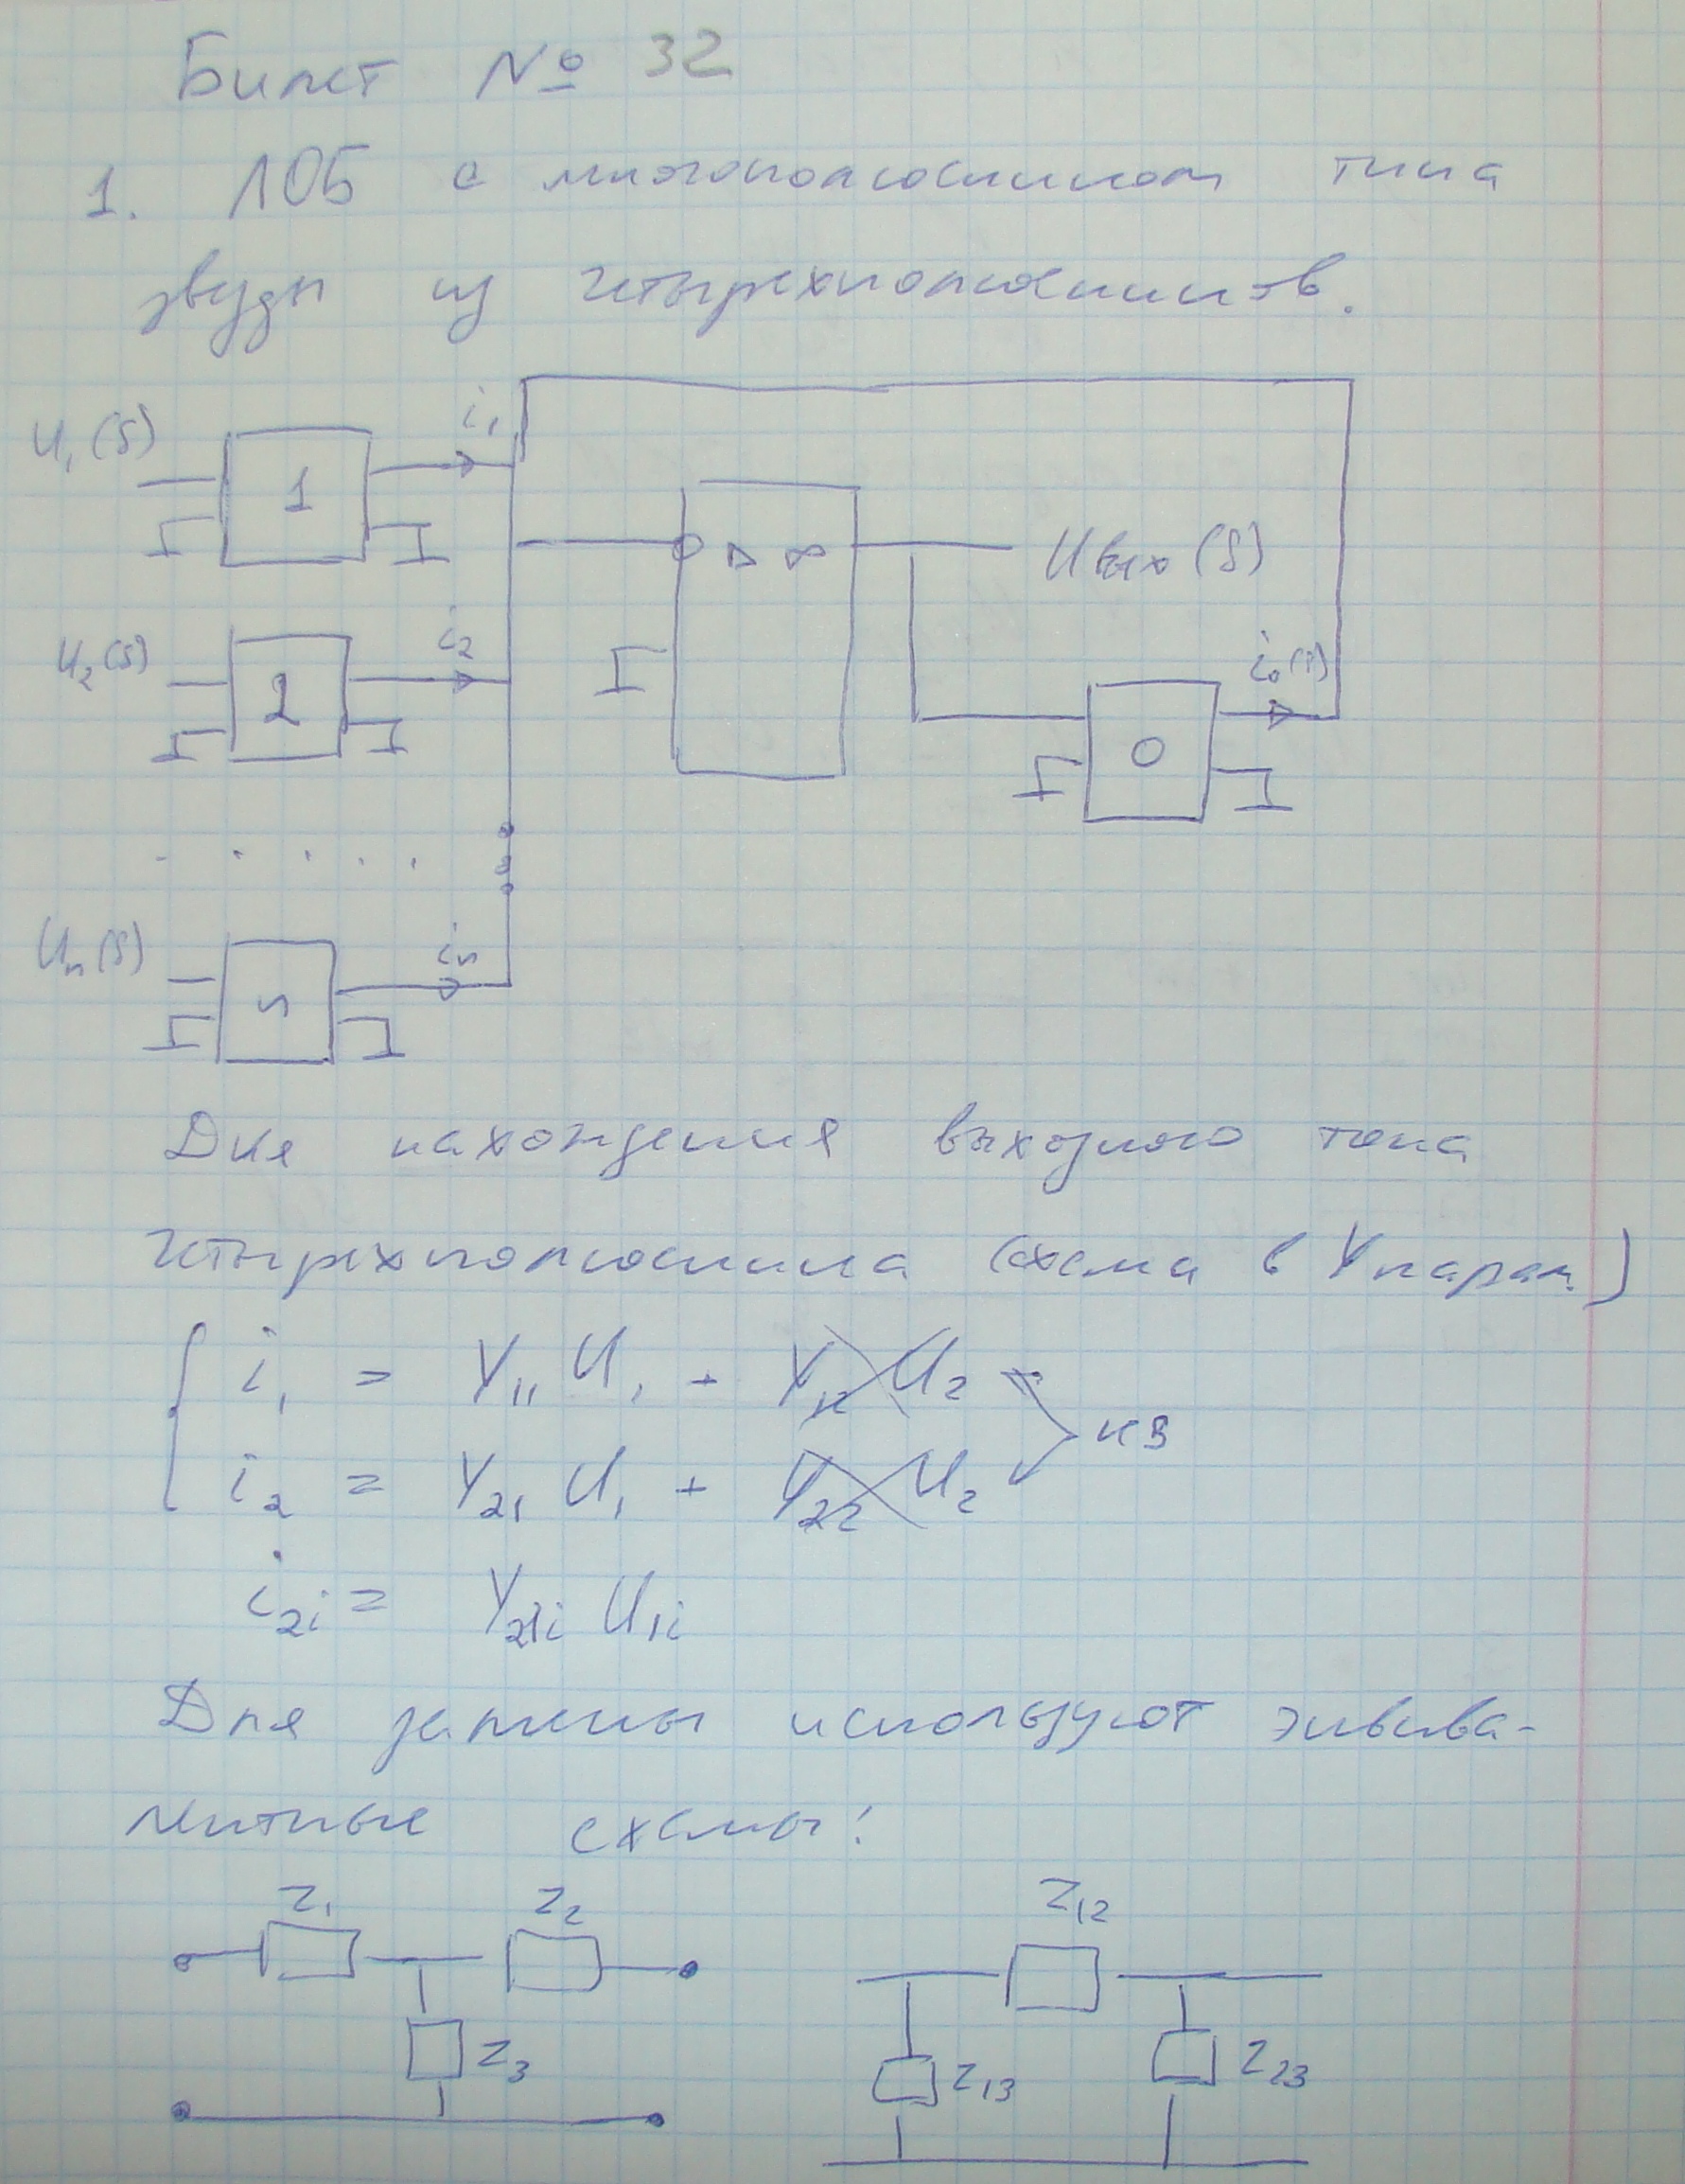 Билет № 32
1. ЛОБ с многополюсником типа
звезды из четырехполюсников.
U₁(S) 1 i₁
▷ ∞ Uвых(S)
U₂(S) 2 i₂
i₀(s) 0
Uₙ(S) n iₙ
Для нахождения выходного тока
четырехполюсника (схема в Y парам.)
i₁ = Y₁₁ U₁ + Y₁₂ U₂
КЗ
i₂ = Y₂₁ U₁ + Y₂₂ U₂
i₂ᵢ = Y₂₁ᵢ U₁ᵢ
Для замены используют эквива-
лентные схемы:
Z₁ Z₂ Z₁₂
Z₃ Z₁₃ Z₂₃